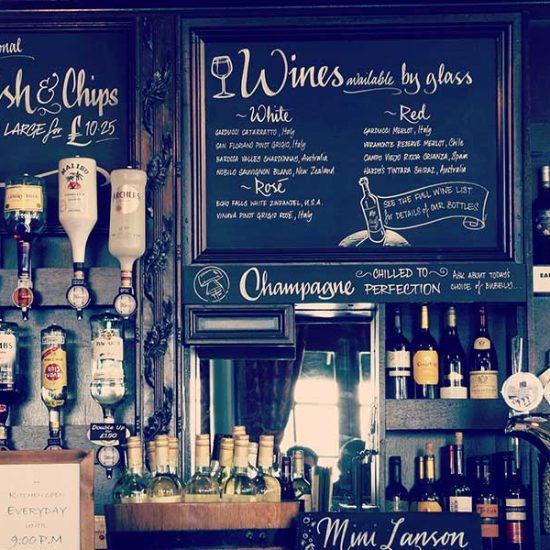 onal
sh & Chips
LARGE for £10.25
Wines available by glass
~White
CARDUCCI CATARRATTO, Italy
SAN FLORIANO PINOT GRIGIO, Italy
BAROCCA VALLEY CHARDONNAY, Australia
NOBILO SAUVIGNON BLANC, New Zealand
~Rosé
ECHO FALLS WHITE ZINFANDEL, U.S.A.
PINOT GRIGIO ROSÉ, Italy
~Red
CARDUCCI MERLOT, Italy
VERAMONTE RESERVA MERLOT, Chile
CAMPO VIEJO RIOJA CRIANZA, Spain
HARDYS TINTARA SHIRAZ, Australia
SEE THE FULL WINE LIST
for DETAILS of OUR BOTTLES
Champagne
~CHILLED TO~
PERFECTION
ASK ABOUT TODAY'S
CHOICE OF BUBBLY...
MALIBU
ARCHERS
BACARDI
Double Up
£1.50
KITCHEN OPEN
EVERYDAY
UNTIL
9:00 P.M
Mini Lanson